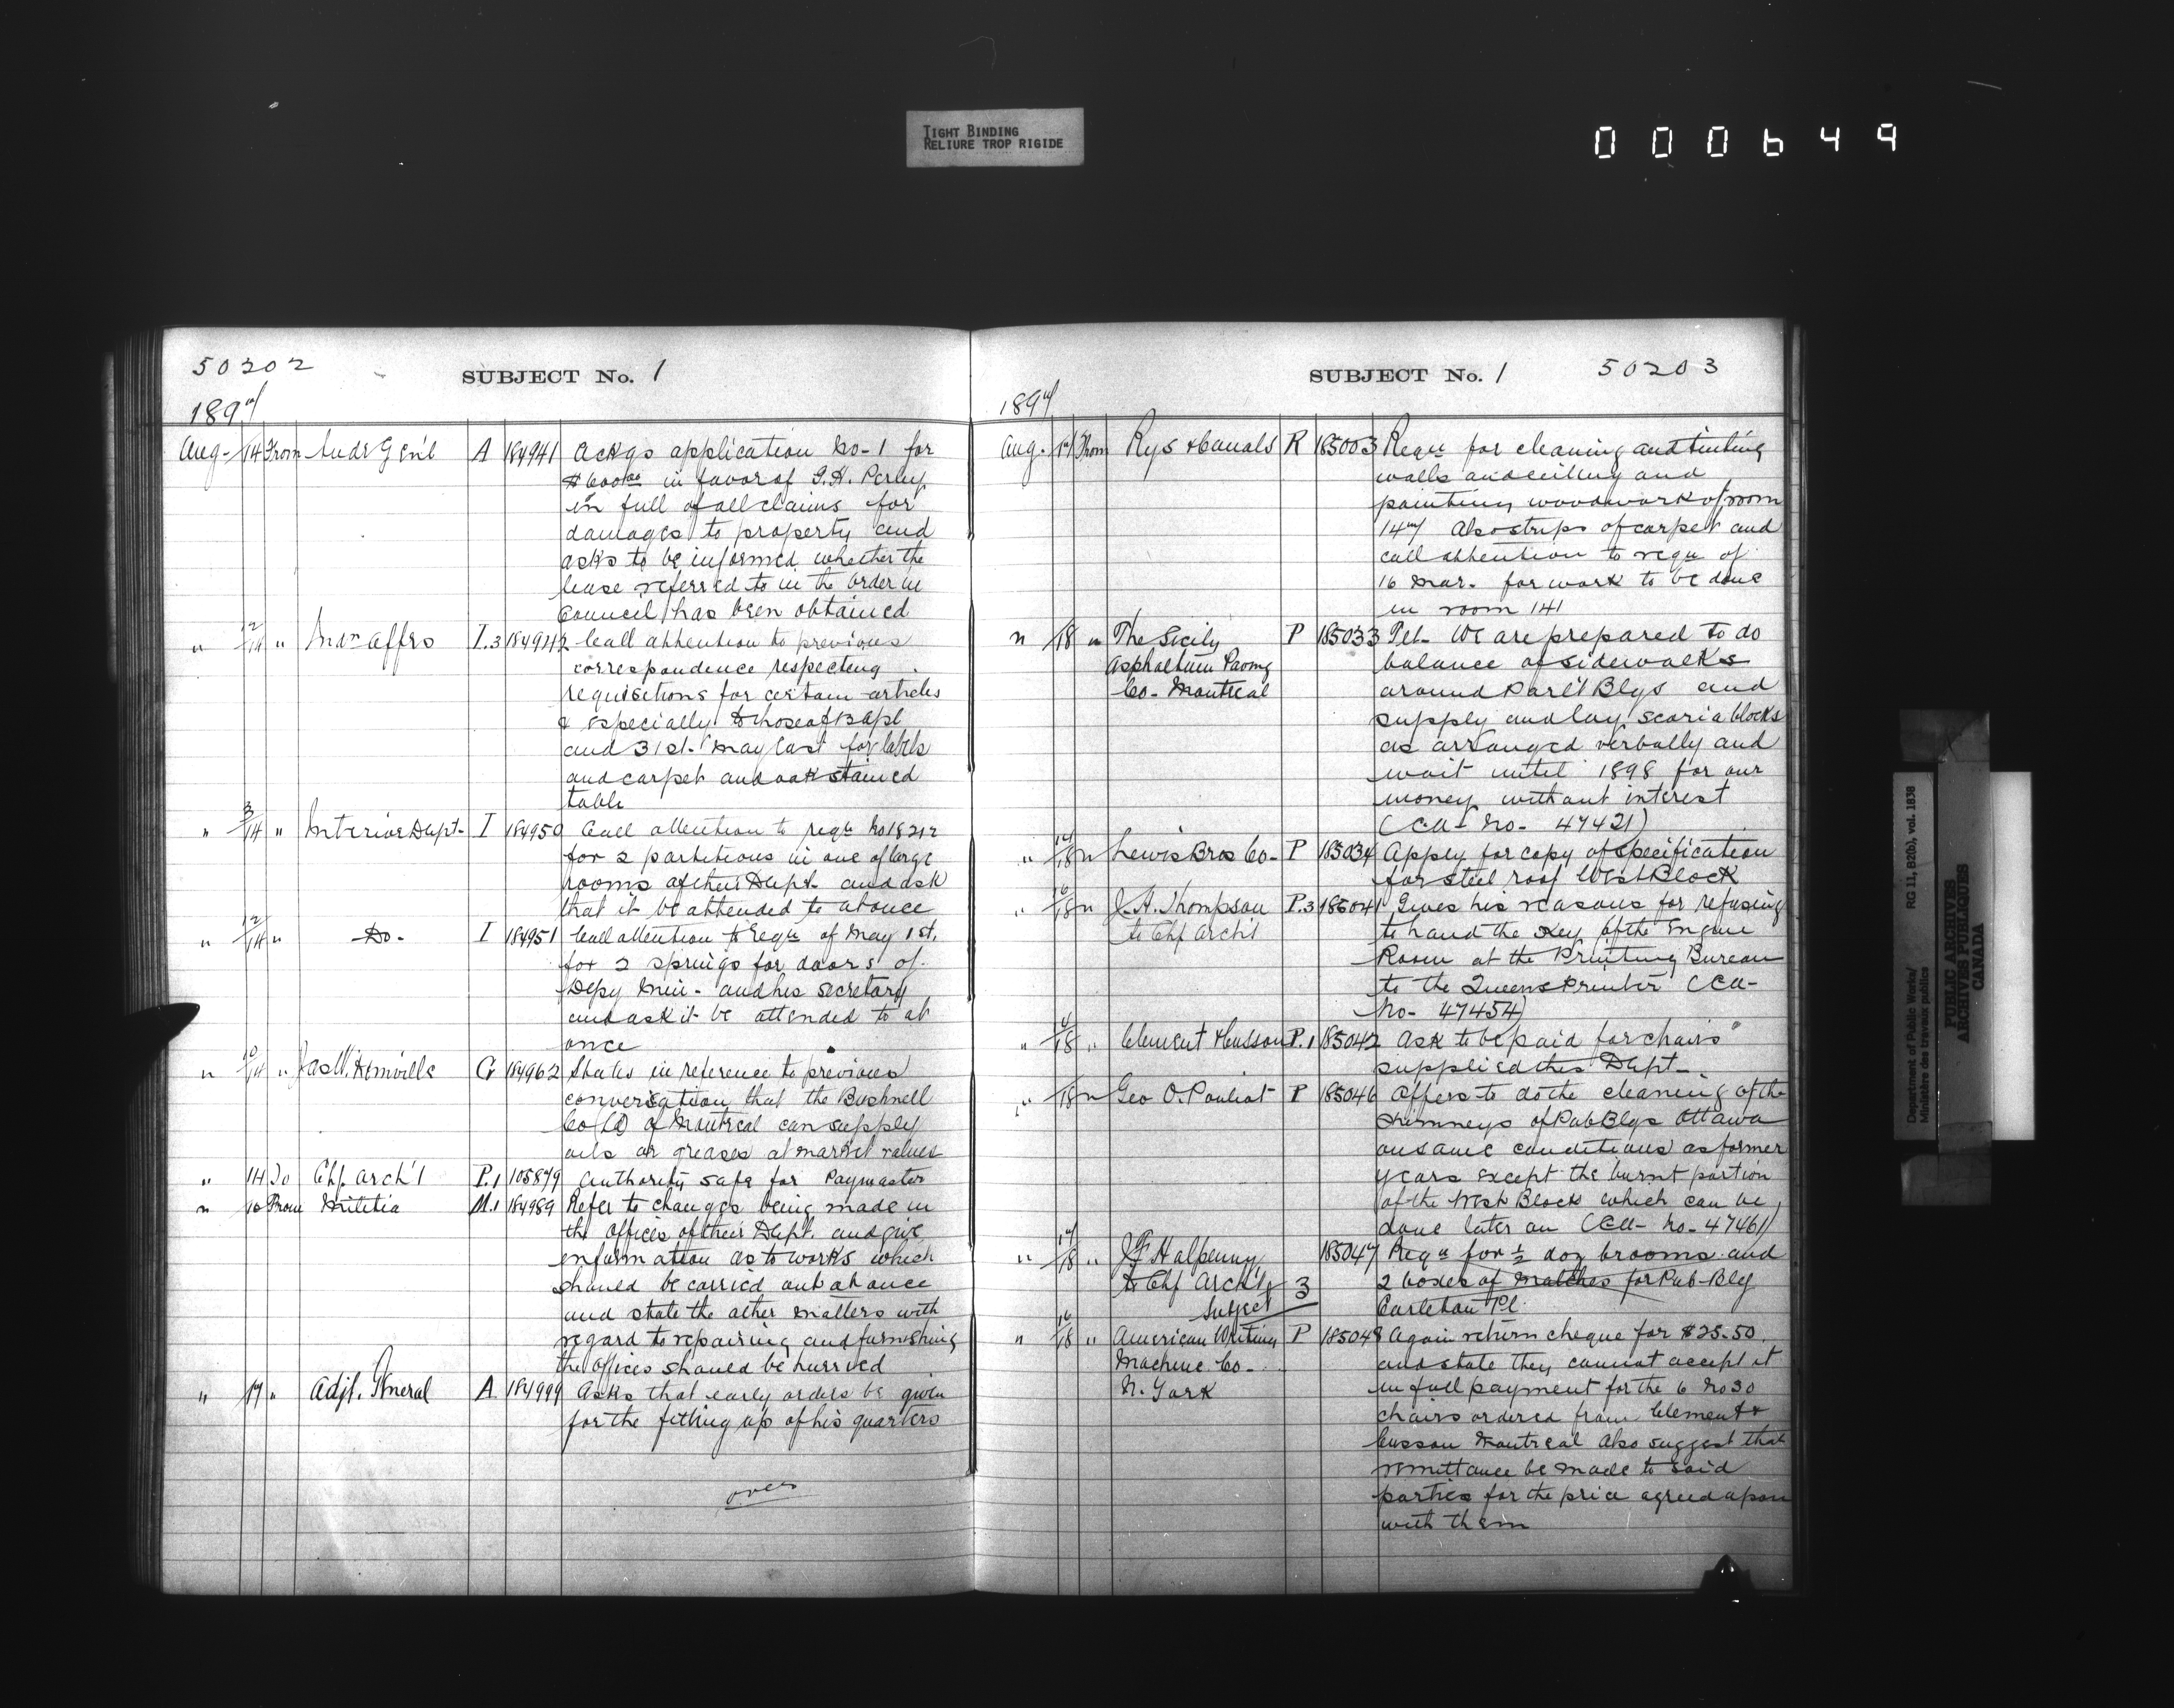 TIGHT BINDING
RELIURE TROP RIGIDE
000649
50202
SUBJECT No. 1
1897
Aug- 14 From Audr Genl A 184941 Ackgs application No-1 for
$600.00 in favor of G.H. Perley
in full of all claims for
damages to property and
asks to be informed whether the
lease referred to in the Order in
Council has been obtained
" 12/14 " Indn Affrs I.3 184942 Call attention to previous
correspondence respecting
requisitions for certain articles
& especially to those of 13 Apl
and 31st May last for labels
and carpet and oak stained
table
" 3/14 " Interior Dept- I 184950 Call attention to reqn No 18212
for 2 partitions in one of large
rooms of their Dept. and ask
that it be attended to at once
" 12/14 " Do- I 184951 Call attention to reqn of May 1st,
for 2 springs for doors of
Depy Min- and his secretary
and ask it be attended to at
once
" 10/14 " Jas W. Domville G 184962 States in reference to previous
conversation that the Bushnell
Co Ld of Montreal can supply
oils or greases at market values
" 14 To Chf. Arch't P.1 105879 Authority safe for Paymaster
" 10 From Militia M.1 184989 Refer to changes being made in
the offices of their Dept. and give
information as to works which
should be carried out at once
and state the other matters with
regard to repairing and furnishing
the offices should be hurried
" 17 " Adjt. General A 184999 Asks that early orders be given
for the fitting up of his quarters
over
SUBJECT No. 1
50203
1897
Aug. 17 From Rys & Canals R 185003 Reqn for cleaning and tinting
walls and ceiling and
painting woodwork of room
147 Also strips of carpet and
call attention to reqn of
16 Mar. for work to be done
in room 141
" 18 " The Sicily P 185033 Tel- We are prepared to do
Asphaltum Paving balance of sidewalks
Co- Montreal around Parl't Blgs and
supply and lay scoria blocks
as arranged verbally and
wait until 1898 for our
money without interest
(CA- No- 47421)
" 17/18 " Lewis Bros Co- P 185034 Apply for copy of specification
for steel roof West Block
" 16/18 " J.H. Thompson P.3 185041 Gives his reasons for refusing
to Chf Archt to hand the key of the Engine
Room at the Printing Bureau
to the Queens Printer (CA-
No- 47454)
" 4/18 " Clement & Cusson P.1 185042 Ask to be paid for chairs
supplied this Dept-
" 18 " Geo O. Pouliot P 185046 Offers to do the cleaning of the
chimneys of Pub Blgs Ottawa
on same conditions as former
years except the burnt portion
of the West Block which can be
done later on (CA- No- 47461)
" 17/18 " J F Halpenny 185047 Reqn for ½ doz brooms and
to Chf Archt 2 boxes of matches for Pub- Blg
Subject 3 Carleton Pl.
" 16/18 " American Writing P 185048 Again return cheque for $25.50
Machine Co- and state they cannot accept it
N. York in full payment for the 6 No 30
chairs ordered from Clement &
Cusson Montreal Also suggest that
remittance be made to said
parties for the price agreed upon
with them
Department of Public Works/
Ministère des travaux publics
RG 11, B2(b), vol. 1838
PUBLIC ARCHIVES
ARCHIVES PUBLIQUES
CANADA